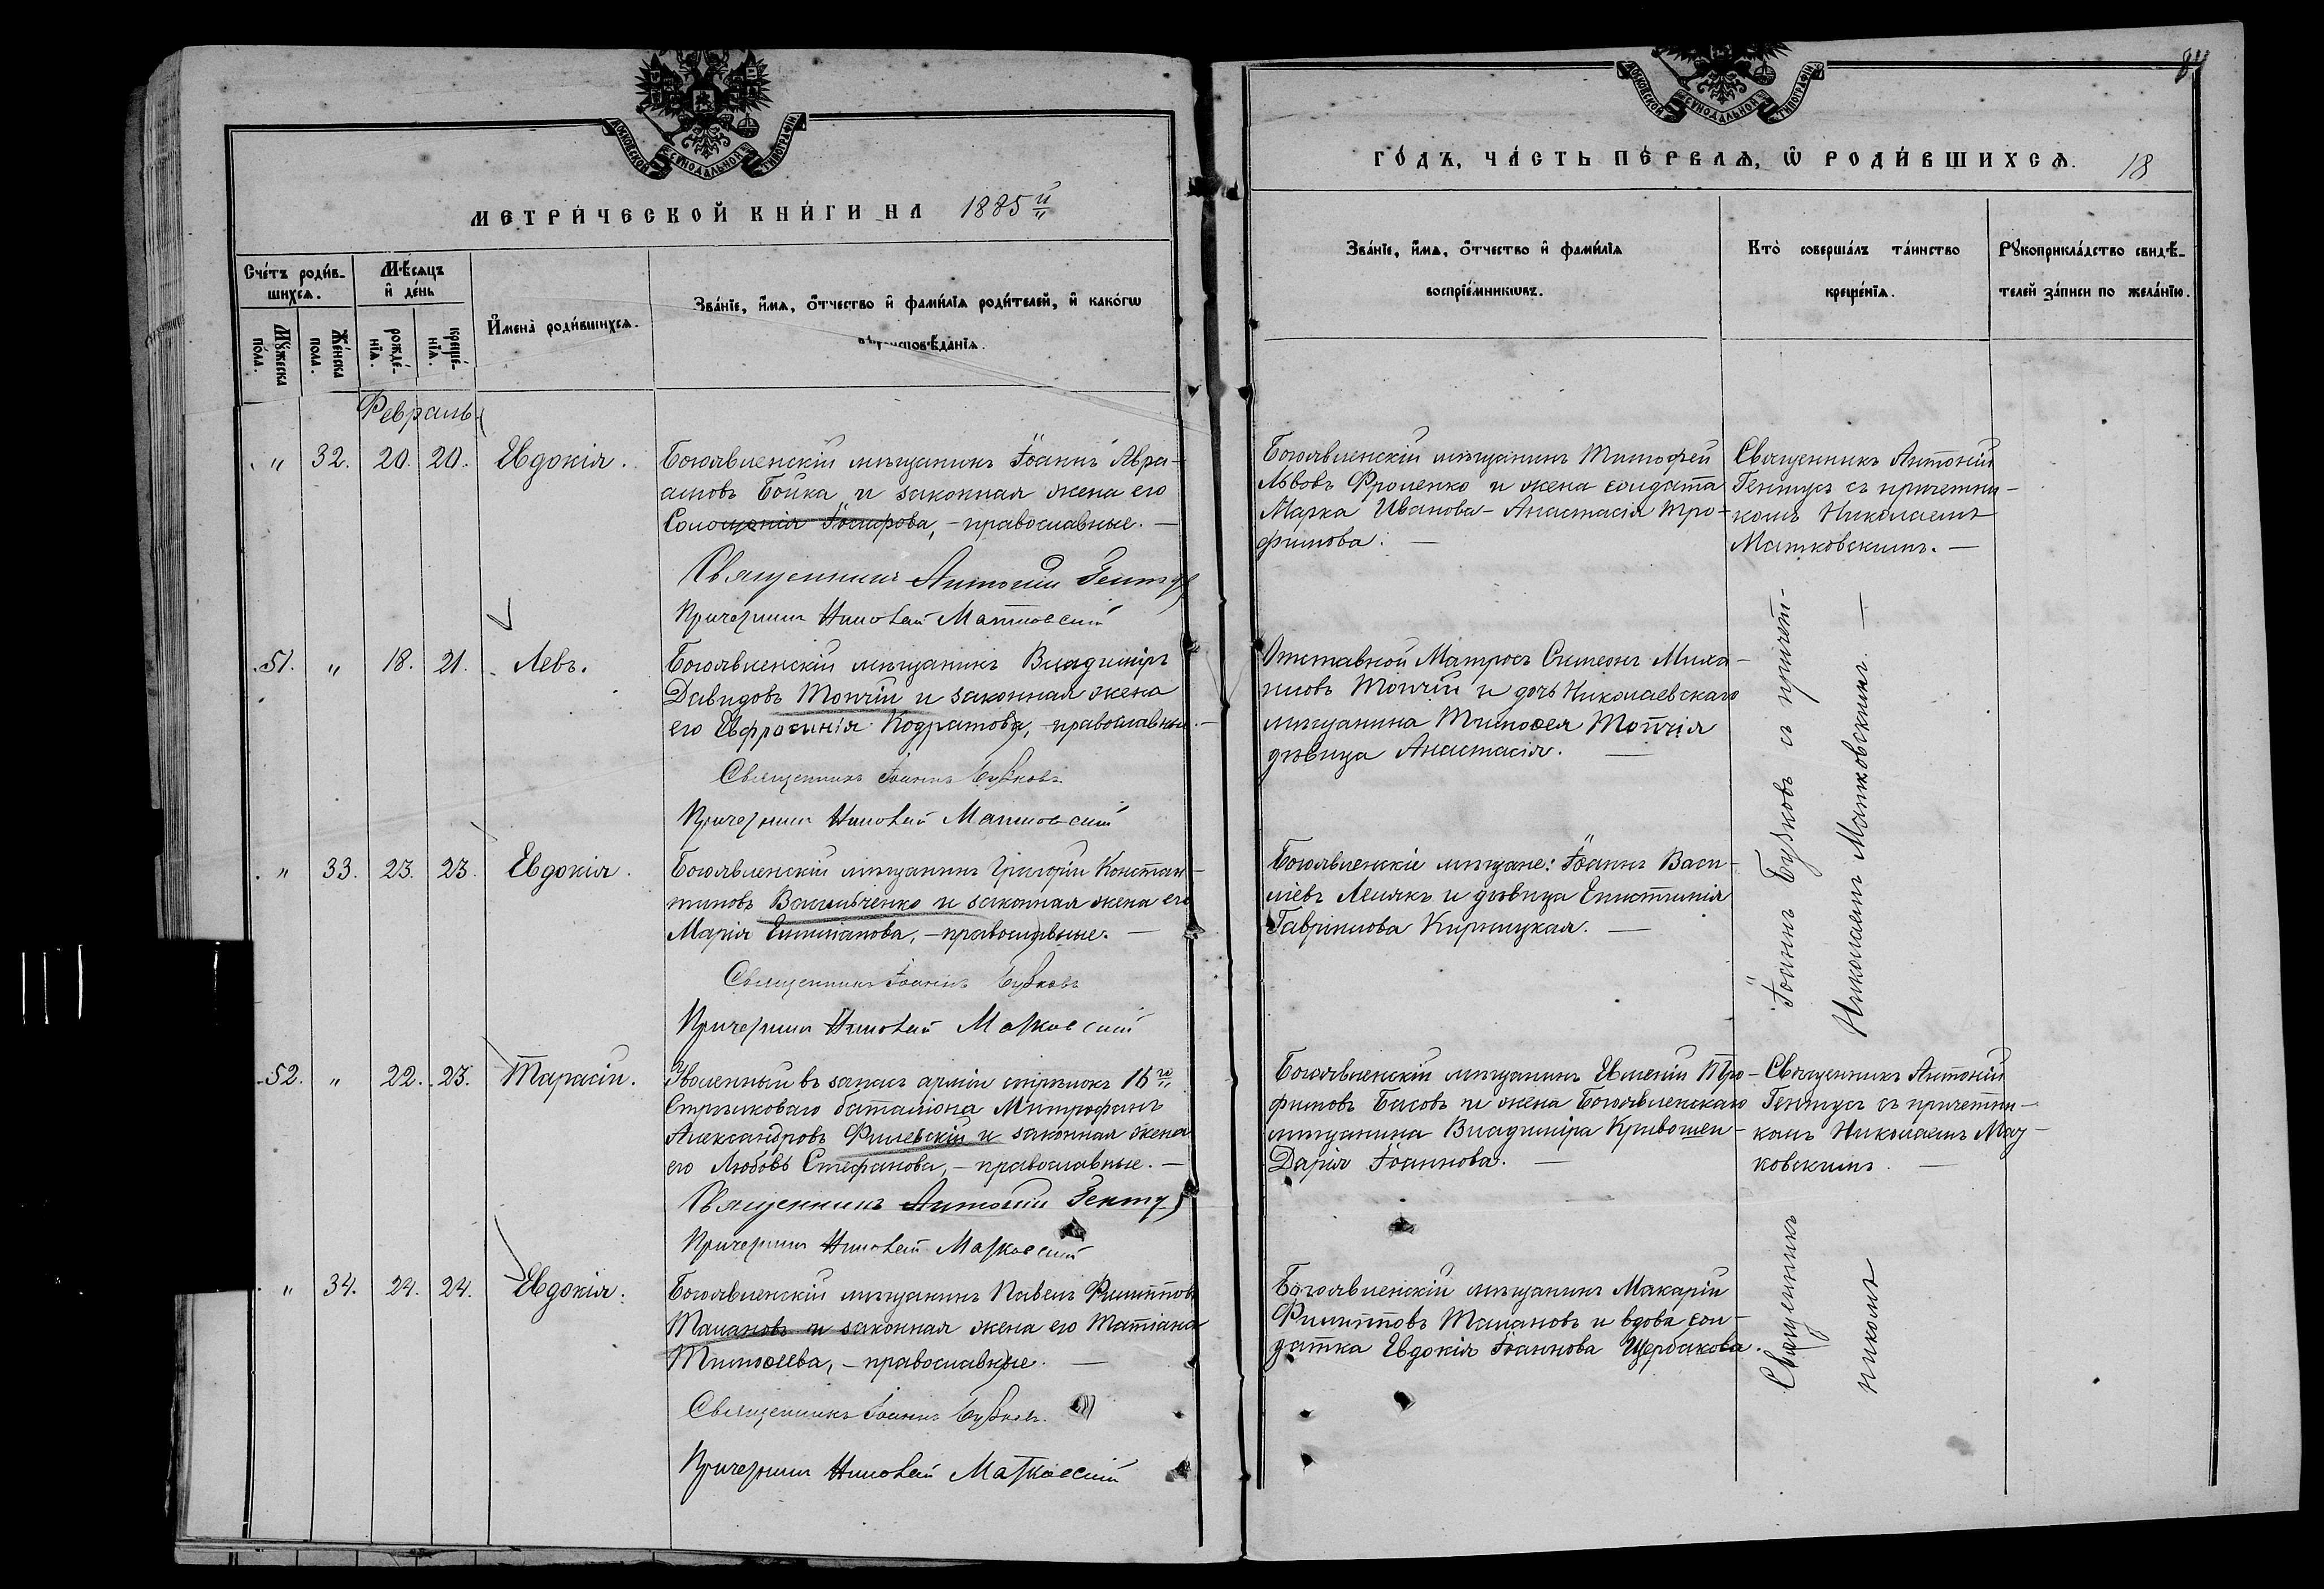 МОСКОВСКОЙ СѴНОДАЛЬНОЙ ТИПОГРАФІИ
МЕТРИ́ЧЕСКОЙ КНИ́ГИ НА 1885й
Сче́тъ роди́в-
шихсѧ.
Мѣ́сѧцъ
и҆ де́нь
И҆мена̀ роди́вшихсѧ.
Зва́нїе, и҆́мѧ, ѻ҆́тчество и҆ фами́лїѧ роди́телей, и҆ како́гѡ
вѣроисповѣ́данїѧ.
Мꙋ́жеска
пола.
Же́нска
пола.
рожде́-
нїѧ.
креще́-
нїѧ.
Февраль
" 32. 20. 20. Евдокія.
Богоявленскій мѣщанинъ Іоаннъ Авра-
амовъ Бойка и законная жена его
Соломонія Іосифова, - православные. -
Священникъ Антоній Гентус
Причетникъ Николай Матковский
51. " 18. 21. Левъ.
Богоявленскій мѣщанинъ Владиміръ
Давидовъ Топчій и законная жена
его Евфросинія Кодратова, - православные. -
Священникъ Іоаннъ Бузковъ
Причетникъ Николай Матковский
" 33. 23. 23. Евдокія.
Богоявленскій мѣщанинъ Григорій Констан-
тиновъ Васильченко и законная жена его
Марія Епифанова, - православные. -
Священникъ Іоаннъ Бузковъ
Причетникъ Николай Матковский
52. " 22. 23. Тарасій.
Уволенный въ запасъ арміи стрѣлокъ 16го
Стрѣлковаго баталіона Митрофанъ
Александровъ Филевскій и законная жена
его Любовь Стефанова, - православные. -
Священникъ Антоній Гентус
Причетникъ Николай Матковский
" 34. 24. 24. Евдокія.
Богоявленскій мѣщанинъ Павелъ Филипповъ
Талановъ и законная жена его Татіана
Тимоѳеева, - православные. -
Священникъ Іоаннъ Бузковъ
Причетникъ Николай Матковский
МОСКОВСКОЙ СѴНОДАЛЬНОЙ ТИПОГРАФІИ
84
ГО́ДЪ, ЧА́СТЬ ПЕ́РВАѦ, Ѡ҆ РОДИ́ВШИХСѦ. 18
Зва́нїе, и҆́мѧ, ѻ҆́тчество и҆ фами́лїѧ
воспрїе́мникѡвъ.
Кто̀ соверша́лъ та́инство
креще́нїѧ.
Рꙋкоприкла́дство свидѣ́-
телей за́писи по жела́нїю.
Богоявленскій мѣщанинъ Тимофей
Львовъ Фроленко и жена солдата
Марка Иванова - Анастасія Тро-
фимова. -
Священникъ Антоній
Гентусъ съ причетни-
комъ Николаемъ
Матковскимъ. -
Отставной Матросъ Симеонъ Миха-
иловъ Топчій и дочь Николаевскаго
мѣщанина Тимоѳея Топчія
дѣвица Анастасія. -
Богоявленскіе мѣщане: Іоаннъ Васи-
ліевъ Лелякъ и дѣвица Епистимія
Гавріилова Кирницкая. -
Богоявленскій мѣщанинъ Евменій Тро-
фимовъ Басовъ и жена Богоявленскаго
мѣщанина Владиміра Кривошеи -
Дарія Іоаннова. -
Священникъ Антоній
Гентусъ съ причетни-
комъ Николаемъ Мат-
ковскимъ. -
Богоявленскій мѣщанинъ Макарій
Филипповъ Талановъ и вдова сол-
датка Евдокія Іоаннова Щербакова.
Священникъ Іоаннъ Бузковъ съ причет-
никомъ Николаемъ Матковскимъ. -